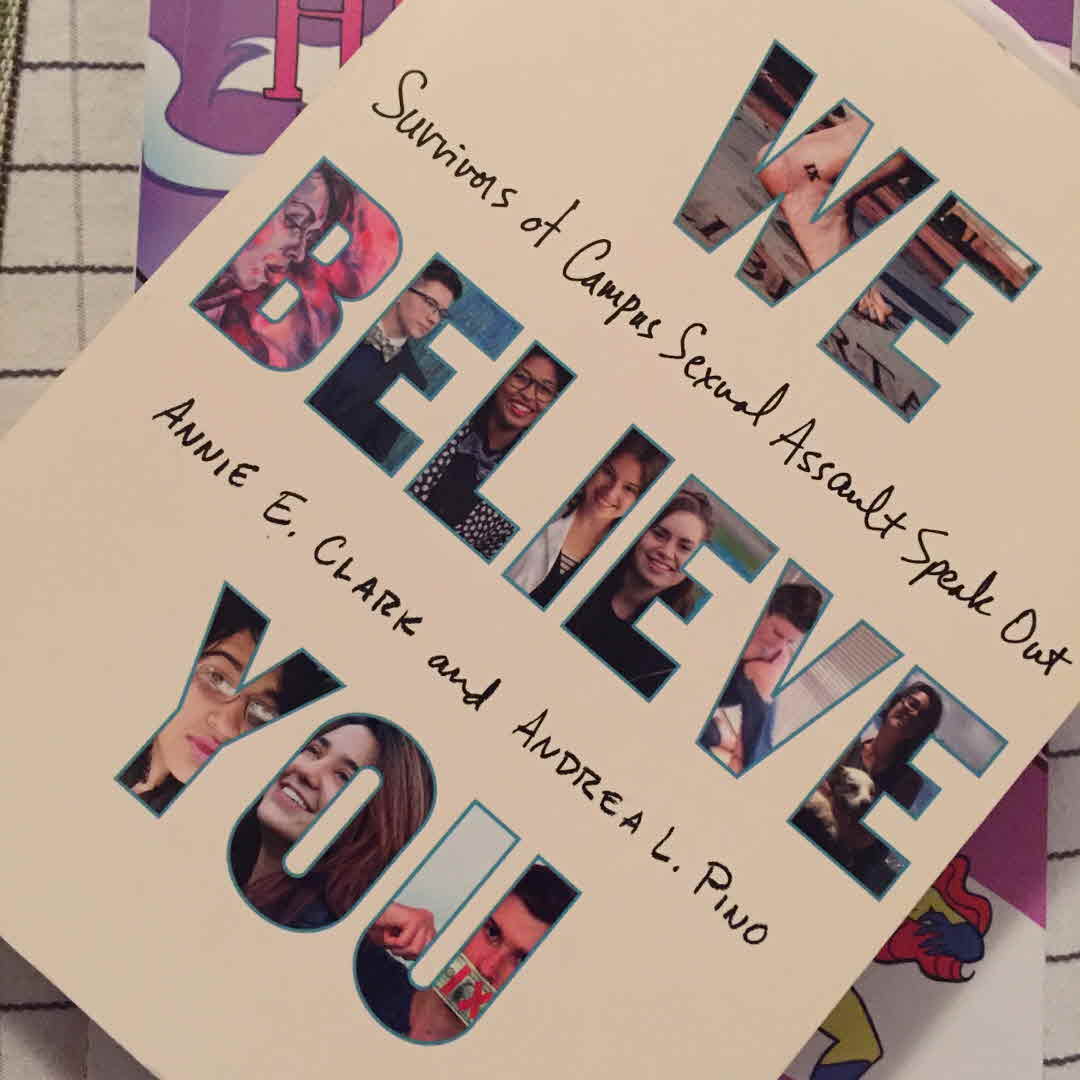 WE
Survivors of Campus Sexual Assault Speak Out
BELIEVE
ANNIE E. CLARK and ANDREA L. PINO
YOU
IX